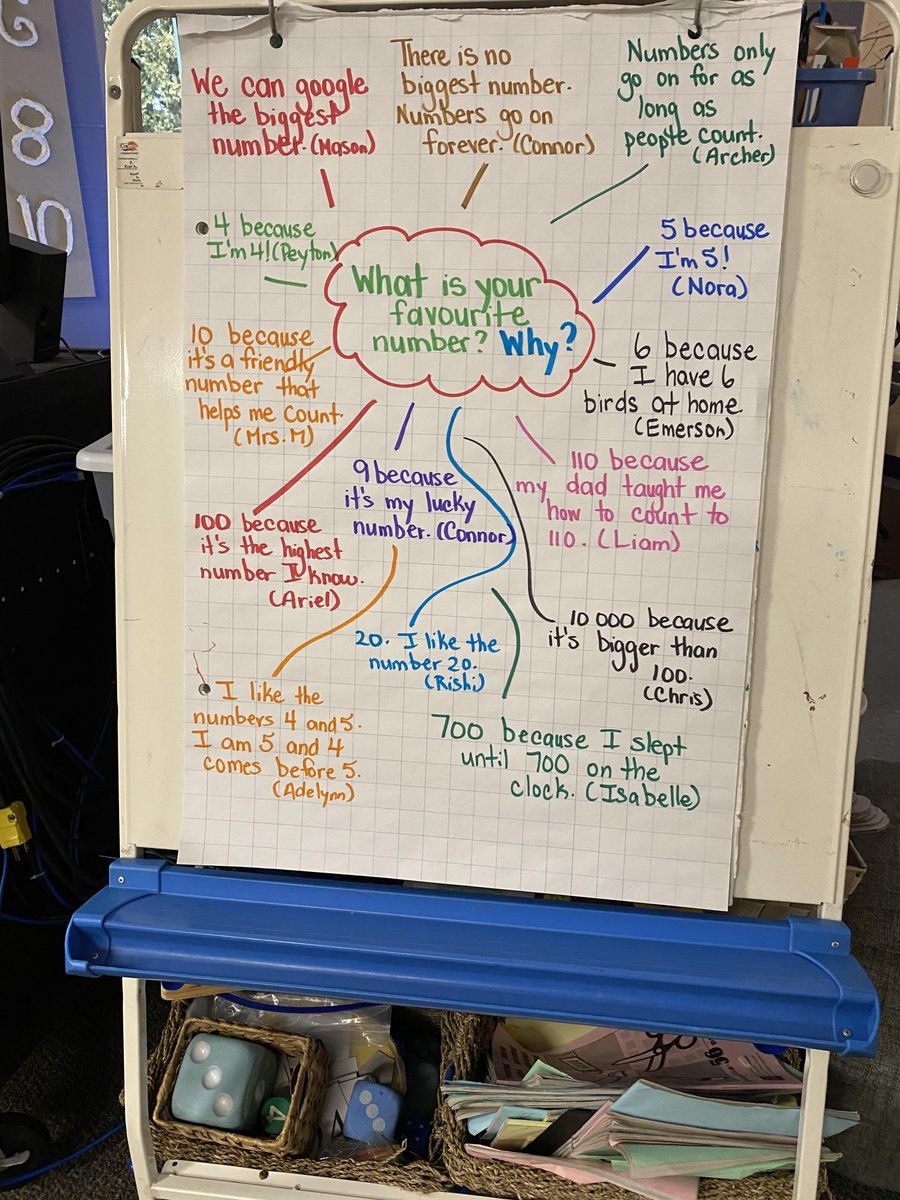 We can google
the biggest
number. (Mason)
There is no
biggest number.
Numbers go on
forever. (Connor)
Numbers only
go on for as
long as
people count.
(Archer)
4 because
I'm 4! (Peyton)
What is your
favourite
number? Why?
5 because
I'm 5!
(Nora)
10 because
it's a friendly
number that
helps me count.
(Mrs. M)
6 because
I have 6
birds at home
(Emerson)
9 because
it's my lucky
number. (Connor)
110 because
my dad taught me
how to count to
110. (Liam)
100 because
it's the highest
number I know.
(Ariel)
20. I like the
number 20.
(Rishi)
10 000 because
it's bigger than
100.
(Chris)
I like the
numbers 4 and 5.
I am 5 and 4
comes before 5.
(Adelynn)
700 because I slept
until 700 on the
clock. (Isabelle)
8
10